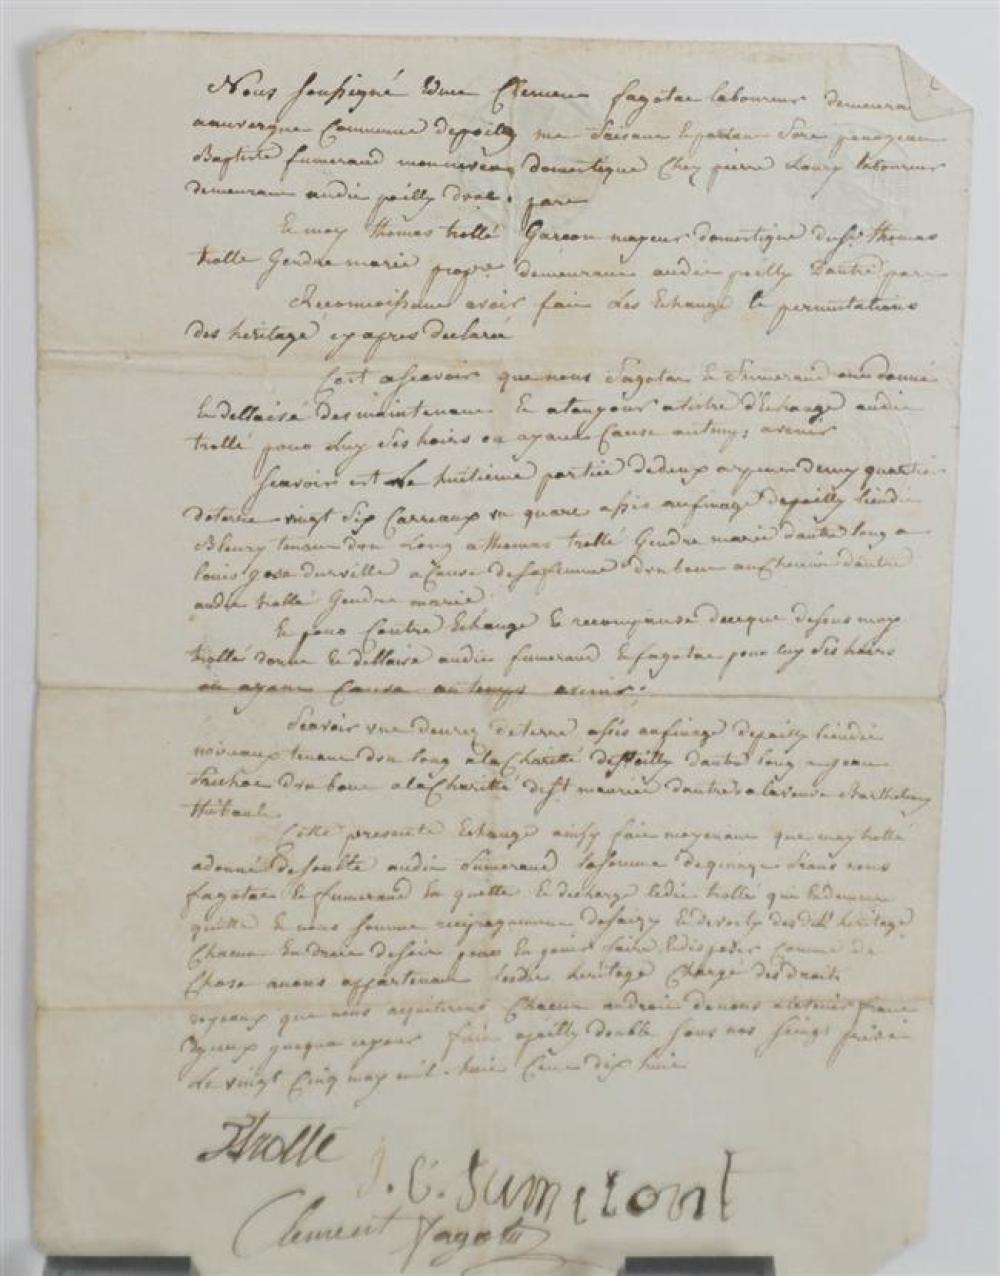 Nous soussigné Edme Clement fagotat laboureur demeurant
aauvergne Commune depoilly me faisant Le portant fort pour jean
Baptiste fumerand mon neveu domestique Chez pierre Loury laboureur
demeurant audit poilly dune part
Et moy thomas trollé Garcon majeur domestique dudit thomas
trollé Gendre marié demeurant audit poilly Dautre part
Reconnoissent avoir fait Les Echange et permutations
des heritage cy apres declaré
C'est asçavoir que nous fagotat Et fumerand donné
Et dellaisé des maintenant Et a toujour atitre d'Echange audit
trollé pour Luy Ses hoirs ou ayant Cause autemps avenir
Scavoir est Le huitieme partie de deux arpent demy quartier
deterre vingt Six Carreaux un quart assis aufinage depoilly lieudit
Bleury tenant d'un Long a thomas trollé Gendre marié dautre long a
louis a Cause desafemme d'un bout au Chemin dautre
audit trollé Gendre marié
Et pour Contre Echange Et recompense deceque dessus moy
trollé donne Et dellaise audit fumerand Et fagotat pour luy Ses hoirs
ou ayant Cause autemps avenir
Scavoir une denrez deterre assis aufinage depoilly lieudit
noiveaux tenant d'un long ala Charité de Poilly dautre long a jean
d'un bout ala Charité de St maurice dautre a laveuve Barthelemy
thibault
Cette presente Echange ainsy fait moyennant que moy trollé
adonné de soulte audit fumerand la somme dequinze francs nous
fagotat Et fumerand En quitte Et decharge ledit trollé qui En demeure
quitte Et nous somme reciproquement desaizy Et devety desdit heritage
Chacun En droit desoit pour En jouir faire Et disposer Comme de
Chose anous appartenant lesdit heritage Chargé des droits
royeaux que nous aquiterons Chacun audroit denous alavenir franc
dyceux jusqua cejour fait apoilly double sous nos seings privé
Le vingt Cinq may mil huit Cent dix huit
Trollé
J. B. fumeront
Clement Fagotat